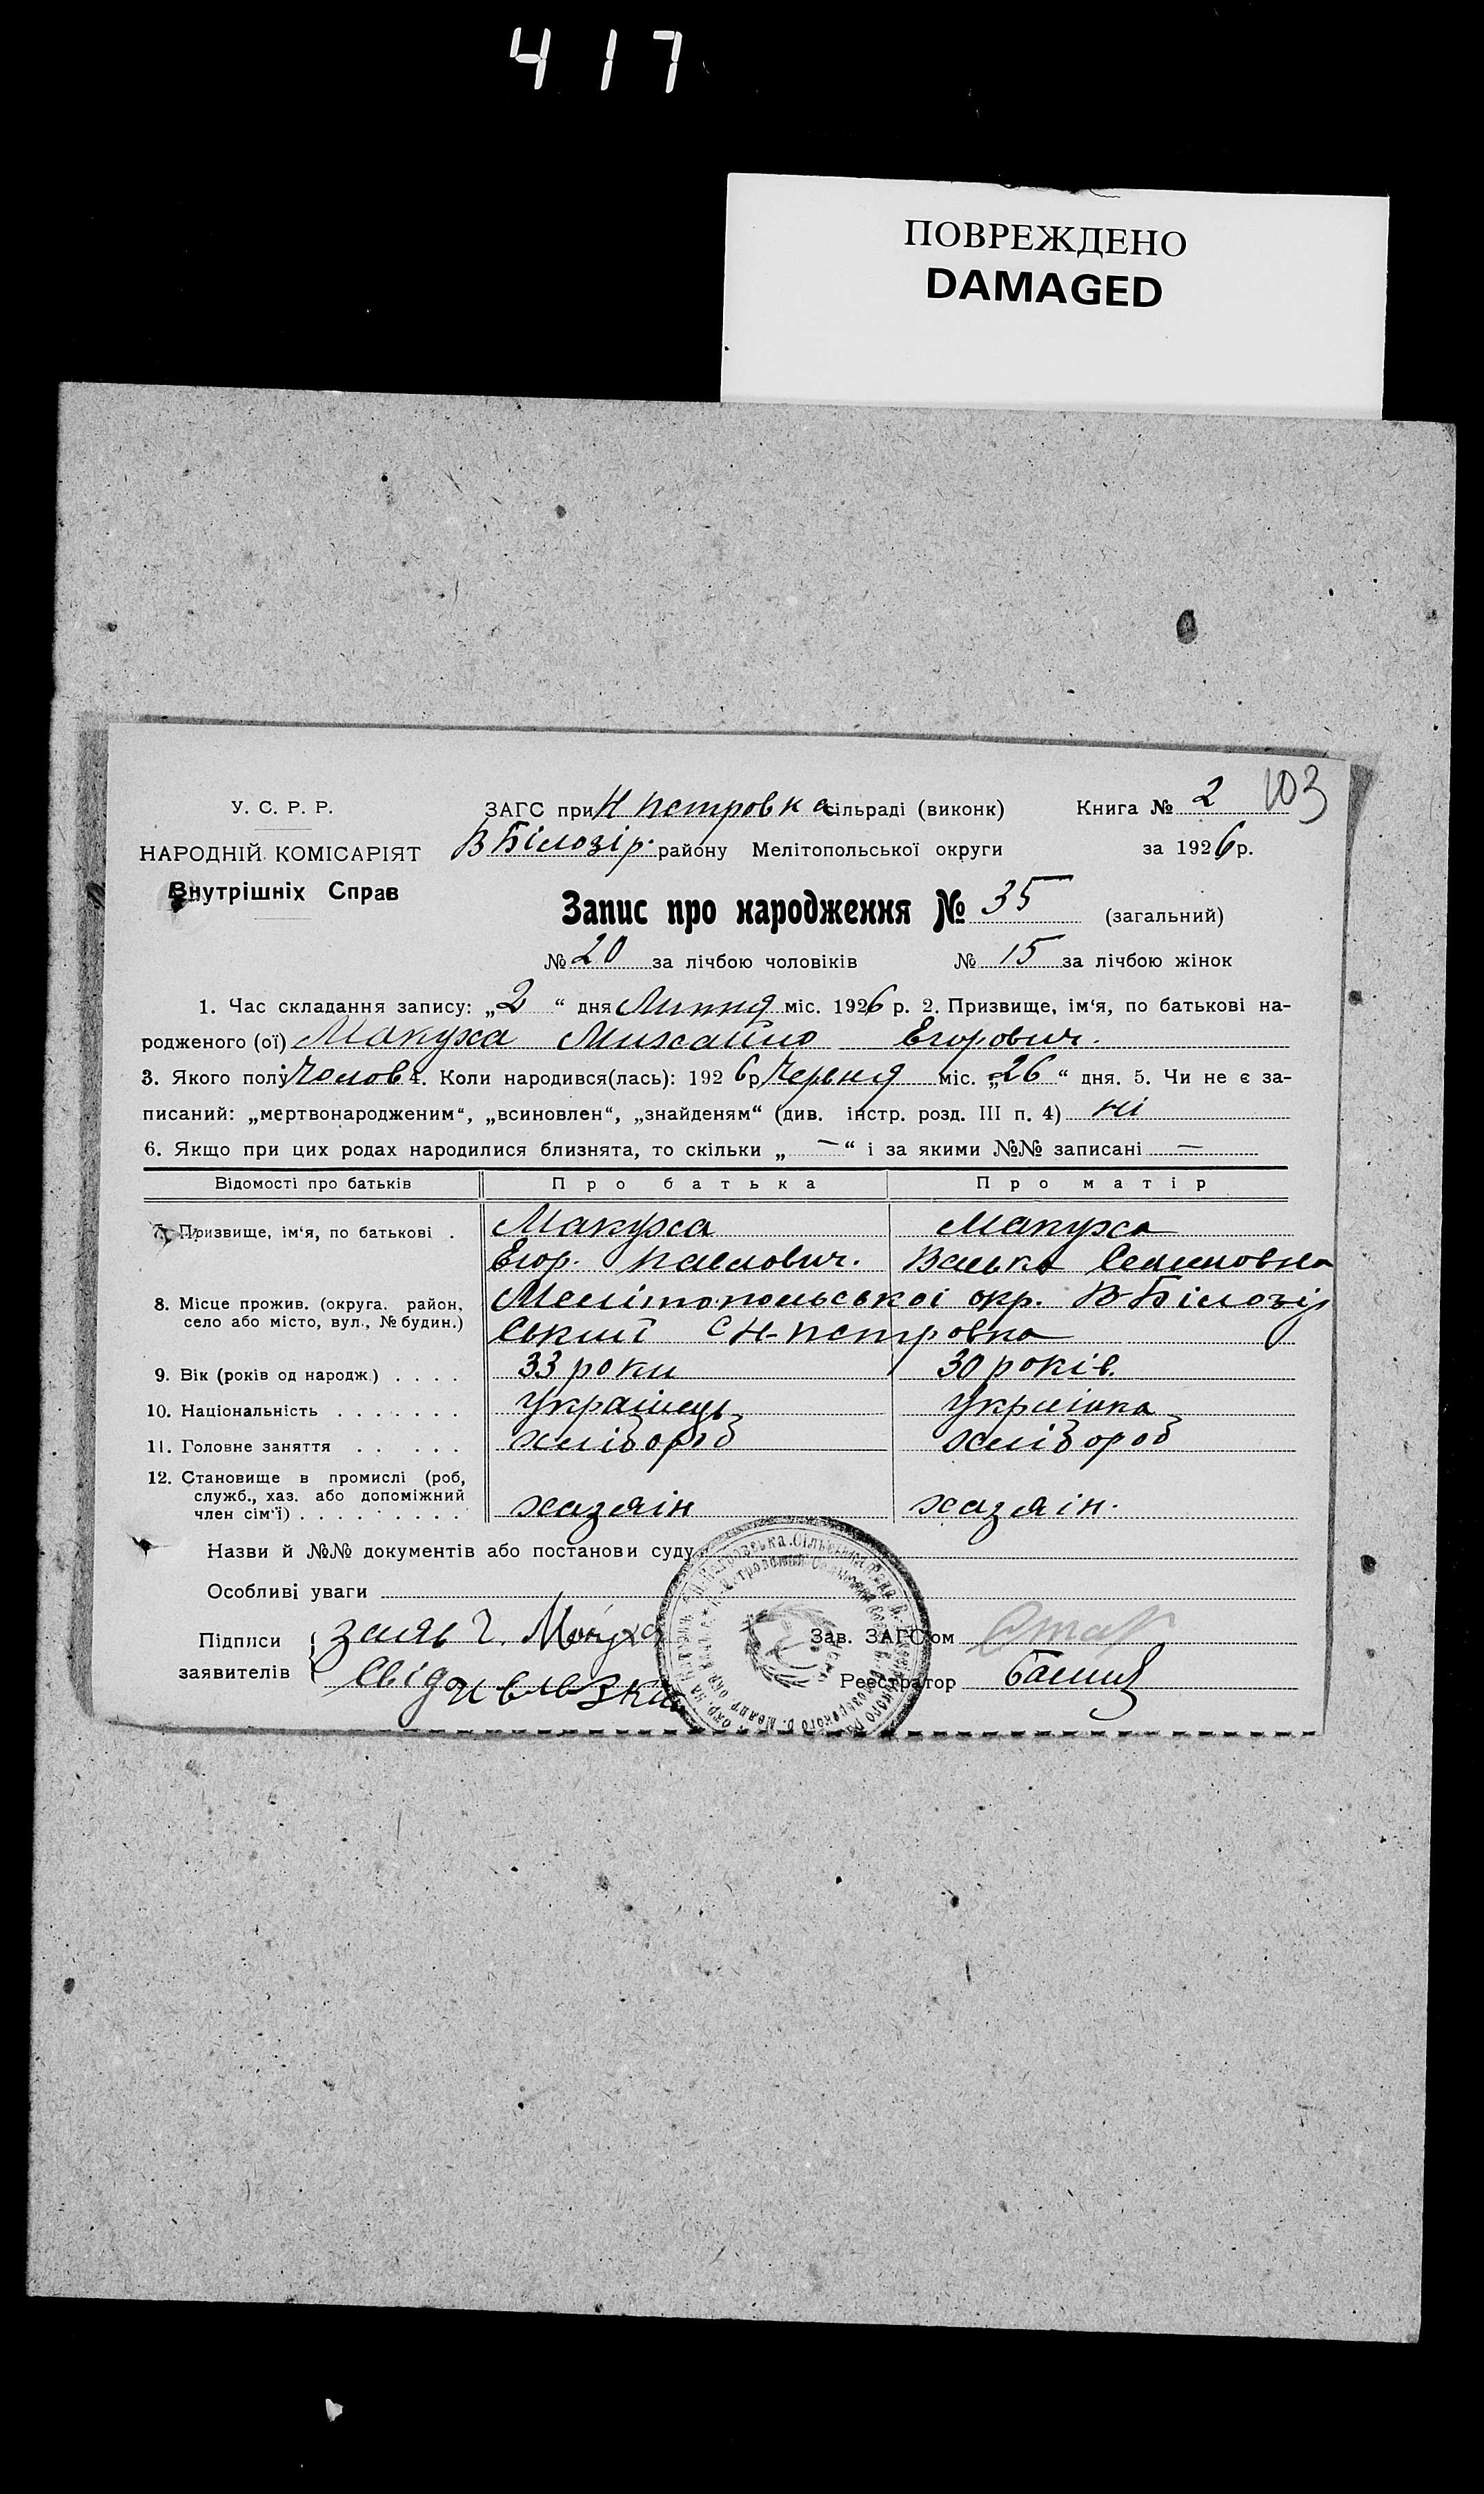 417
ПОВРЕЖДЕНО
DAMAGED
103
У. С. Р. Р.
НАРОДНІЙ КОМІСАРІЯТ
Внутрішніх Справ
ЗАГС при Н петровка сільраді (виконк) Книга № 2
В Білозір. району Мелітопольської округи за 1926 р.
Запис про народження № 35 (загальний)
№ 20 за лічбою чоловіків № 15 за лічбою жінок
1. Час складання запису: „2“ дня Липня міс. 1926 р. 2. Призвище, ім'я, по батькові на-
родженого (ої) Макуха Михайло Егорович.
3. Якого полу Чолов 4. Коли народився(лась): 1926 р Червня міс. „26“ дня. 5. Чи не є за-
писаний: „мертвонародженим“, „всиновлен“, „знайденям“ (див. інстр. розд. III п. 4) ні
6. Якщо при цих родах народилися близнята, то скільки „—“ і за якими №№ записані —
Відомості про батьків Про батька Про матір
7. Призвище, ім'я, по батькові . Макуха Макуха
Егор. Павлович. Семеновна
8. Місце прожив. (округа. район, село або місто, вул., № будин.) Мелітопольської окр. В-Білозір
ський с Н-петровка
9. Вік (років од народж.) . . . . 33 роки 30 років.
10. Національність . . . . . . . Українець Українка
11. Головне заняття . . . . . хлібороб хлібороб
12. Становище в промислі (роб,
служб., хаз. або допоміжний
член сім'ї) . . . . . . . . . хазяїн хазяїн.
Назви й №№ документів або постанови суду
Особливі уваги
Підписи заяв Г. Макуха Зав. ЗАГС'ом
заявителів Свідо Реєстратор